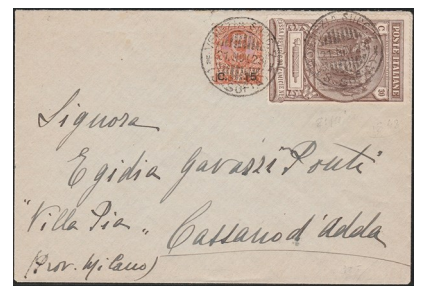 C. 15
POSTE ITALIANE
C. 30
Signora
Egidia Gavazzi Ponti
"Villa Pia"
Cassano d'Adda
(Prov. Milano)